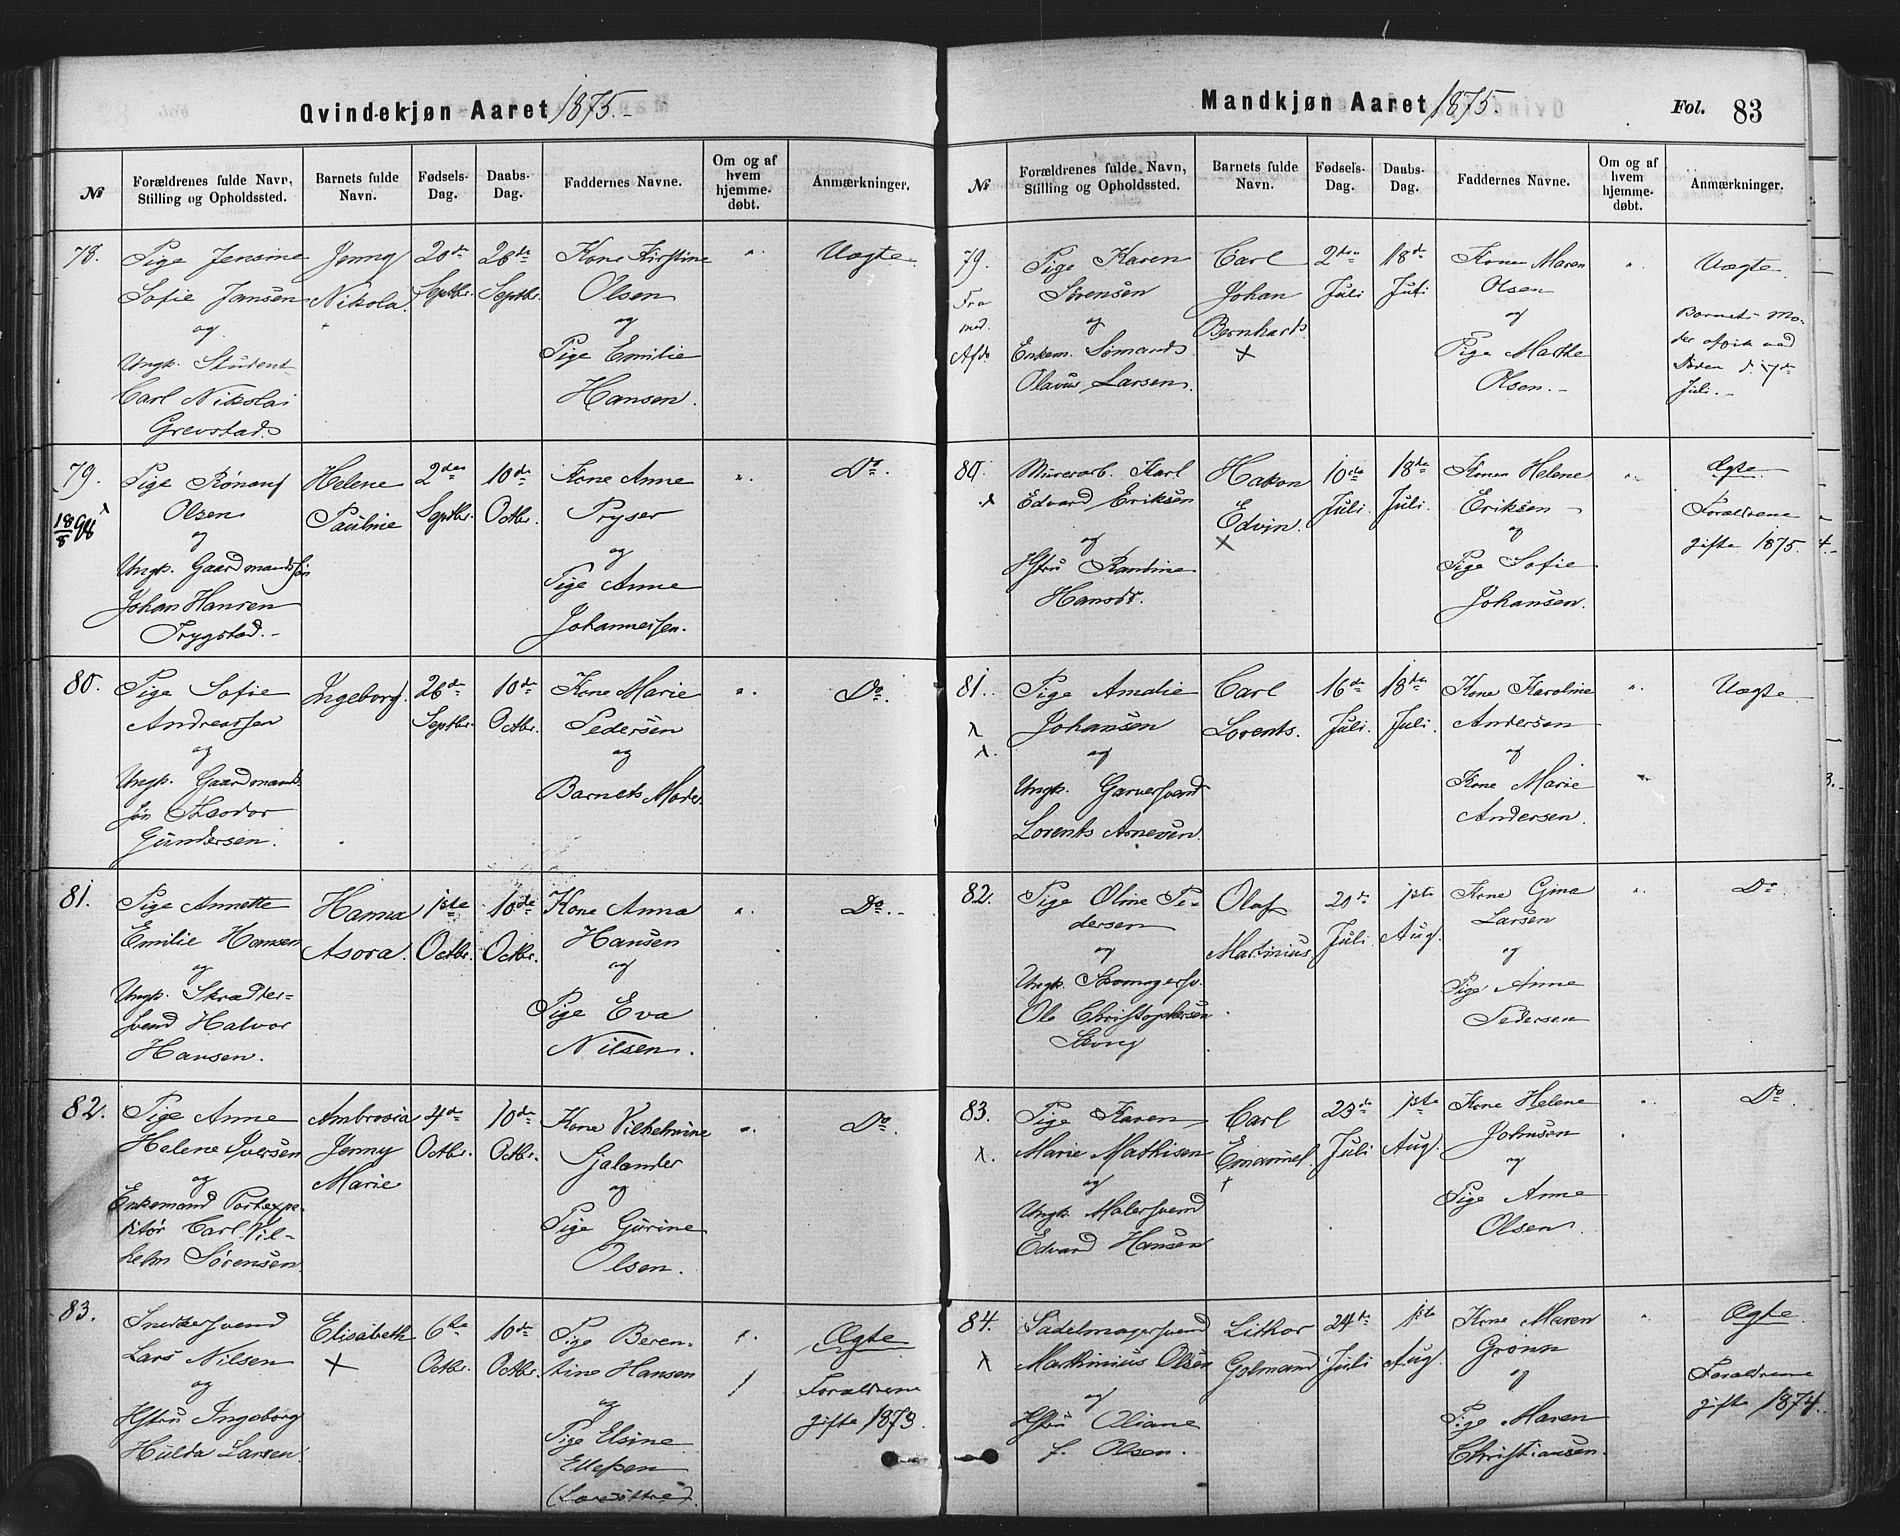 Qvindekjøn Aaret 1875.-
№
Forældrenes fulde Navn,
Stilling og Opholdssted.
Barnets fulde
Navn.
Fødsels-
Dag.
Daabs-
Dag.
Faddernes Navne.
Om og af
hvem
hjemme-
døbt.
Anmærkninger.
78.
Pige Jensine
Sofie Jansen
og
Ungk. Student
Carl Nikolai
Grevstad.
Jenny
Nikola.
20de
Septbr.
26de
Septbr.
Kone Kirstine
Olsen
og
Pige Emilie
Hansen.
"
Uægte.
79.
18/8 98
Pige Rønauf
Olsen
og
Ungk. Gaardmandssøn
Johan Hansen
Trygstad.-
Helene
Pauline
2den
Septbr.
10de
Octbr.
Kone Anne
Pryser
og
Pige Anne
Johannessen.
"
Do.
80.
Pige Sofie
Andreassen
og
Ungk. Gaardmands-
søn Theodor
Gundersen.
Ingeborg.
26de
Septbr.
10de
Octbr.
Kone Marie
Pedersen
og
Barnets Moder.
"
Do.
81.
Pige Annette
Emilie Hansen
og
Ungk. Skrædder-
svend Halvor
Hansen.
Hanna
Asora.
1ste
Octbr.
10de
Octbr.
Kone Anna
Hansen
og
Pige Eva
Nilsen.
"
Do.-
82.
Pige Anne
Helene Iversen
og
Enkemand Postexpe-
ditør Carl Vil-
helm Sørensen.
Ambrosia
Jenny
Marie
4de
Octbr.
10de
Octbr.
Kone Vilhelmine
Sjalander
og
Pige Gurine
Olsen.
"
Do.
83.
Snedkersvend
Lars Nilsen
og
Hstru Ingeborg
Hulda Larsen.
Elisabeth
6te
Octbr.
10de
Octbr.
Pige Beren-
tine Hansen
og
Pige Elsine
Ellefsen
Ægte
Forældrene
gifte 1873.
Mandkjøn Aaret 1875.
Fol. 83
№
Forældrenes fulde Navn,
Stilling og Opholdssted.
Barnets fulde
Navn.
Fødsels-
Dag.
Daabs-
Dag.
Faddernes Navne.
Om og af
hvem
hjemme-
døbt.
Anmærkninger.
79.
Pige Karen
Sørensen
og
Enkem. Sømand
Olavus Larsen.
Carl
Johan
Bernhard.
2den
Juli
18de
Juli
Kone Maren
Olsen
og
Pige Marthe
Olsen.-
"
Uægte.
Barnets Mo-
der afgik ved
Døden d. 17de
Juli.-
80.
Murerarb. Karl
Edvard Eriksen
og
Hstru Rantine
Hansdr.
Hakon
Edvin.
10de
Juli.
18de
Juli.
Kone Helene
Eriksen
og
Pige Sofie
Johansen.
"
Ægte
Forældrene
gifte 1875.
81.
Pige Amalie
Johansen
og
Ungk. Garversvend
Lorents Arnesen.
Carl
Lorents.
16de
Juli.
18de
Juli.
Kone Karoline
Andersen
og
Kone Marie
Andersen.
"
Uægte
82.
Pige Oline Pe-
dersen
og
Ungk. Skomagersv.
Ole Christophersen
Skoug
Olaf
Martinius
20de
Juli
1ste
Aug.
Kone Gina
Larsen
og
Pige Anne
Pedersen
"
Do
83.
Pige Karen
Marie Mathisen
og
Ungk. Malersvend
Edvard Hansen
Carl
Emanuel.
23de
Juli
1ste
Aug.
Kone Helene
Johnsen
og
Pige Anne
Olsen.
Do
84.
Sadelmagersvend
Marthinius Olsen
og
Hstru Oliane
f. Olsen.
Lithor
Golmand
24de
Juli
1ste
Aug.
Kone Maren
Grønn
og
Pige Maren
Christiansen.
"
Ægte
Forældrene
gifte 1874.